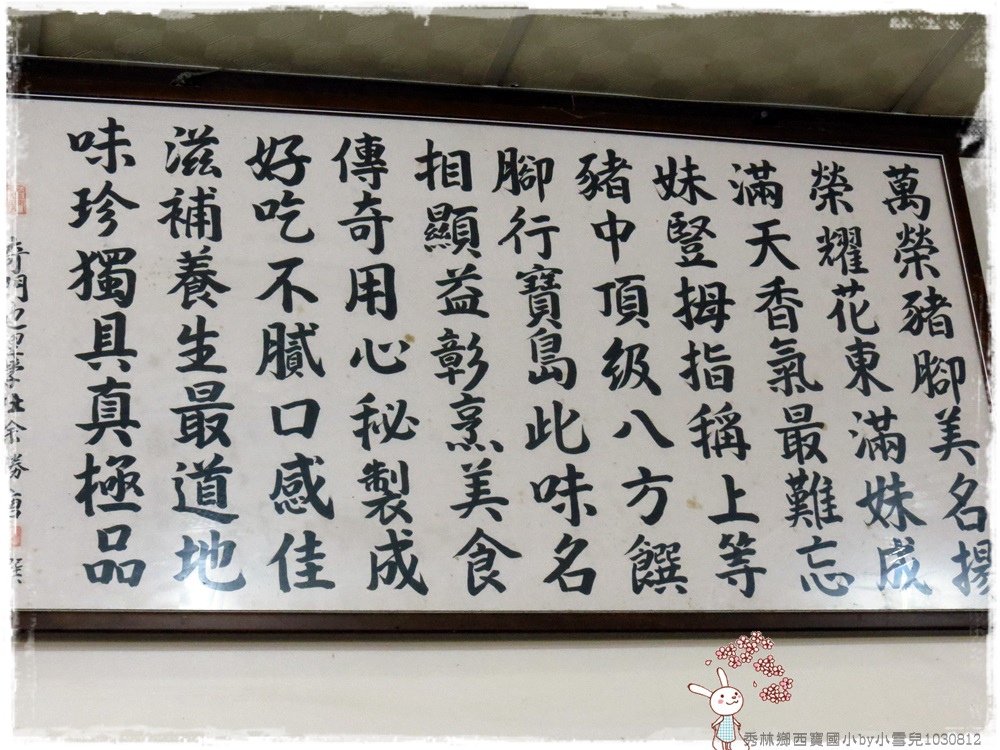 萬榮豬腳美名揚
榮耀花東滿妹成
滿天香氣最難忘
妹豎拇指稱上等
豬中頂級八方饌
腳行寶島此味名
相顯益彰烹美食
傳奇用心秘製成
好吃不膩口感佳
滋補養生最道地
味珍獨具真極品
秀林鄉西寶國小by小雪兒1030812